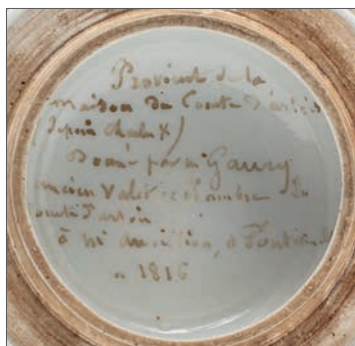 Provient de la
maison du Comte d'artois
(depuis charles X)
Donné par m Gaury
ancien valet de chambre du
Comte d'artois
à mr
en 1816